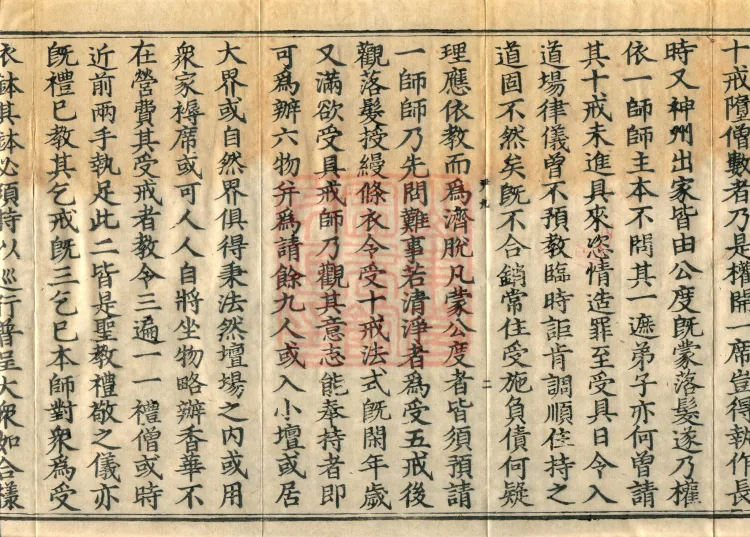 十戒墮僧數者乃是權開一席豈得執作長
時又神州出家皆由公度旣蒙落髮遂乃權
依一師師主本不問其一遮弟子亦何曾請
其十戒未進具來恣情造罪至受具日令入
道場律儀曾不預教臨時詎肯調順住持之
道固不然矣旣不合銷常住受施負債何疑
理應依教而爲濟脫凡蒙公度者皆須預請
一師師乃先問難事若清淨者爲受五戒後
觀落髮授縵條衣令受十戒法式旣閑年歲
又滿欲受具戒師乃觀其意志能奉持者即
可爲辦六物幷爲請餘九人或入小壇或居
大界或自然界俱得秉法然壇場之内或用
衆家褥席或可人人自將坐物略辦香華不
在營費其受戒者教令三遍一一禮僧或時
近前兩手執足此二皆是聖教禮敬之儀亦
旣禮已教其乞戒旣三乞已本師對衆爲受
衣鉢其鉢必須持以巡行普呈大衆如合樣
二